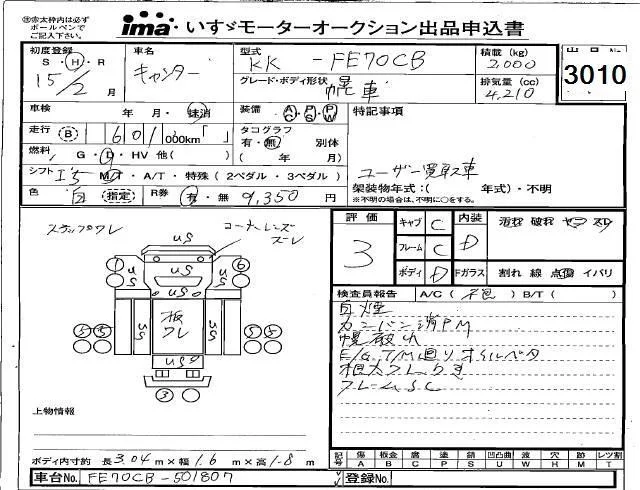 ㊟太枠内は必ず
ボールペンで
ご記入下さい。
ima いすゞモーターオークション出品申込書
初度登録 車名 型式 積載(kg) 出品No
S・H・R キャンター KK - FE70CB 2,000
15/2月 グレード・ボディ形状 幌車 排気量(cc) 4,210
3010
車検 年 月・抹消 装備 AC・PS・PW 特記事項
走行 B 601,000km「 」 タコグラフ
有・無 別体
燃料 G・D・HV 他( ) ( 年 月)
シフト I'5 MT・A/T・特殊(2ペダル・3ペダル) ユーザー買取車
架装物年式:( 年式)・不明
色 白 指定 R券 有・無 9,350円 ※不明の場合は、不明に○をする。
ステップワレ コーナーレンズ
ズレ
評価 3 キャブ C 内装 D
フレーム C
ボディ D Fガラス 割れ 線 点傷 イバリ
検査員報告 A/C( 不良 ) B/T( )
白煙
カンバン消PM
幌破れ
E/G T/M回りオイルベタ
根太ワレウキ
フレームSC
板
ワレ
1 6
5 5 5 5
3
US US US US US US US
上物情報
ボディ内寸約 長3.04m×幅1.6m×高1.8m
記号 傷 A 板金 B 腐 C 塗 P 錆 S 凹凸曲 U 波 W 穴 H 跡 M レツ割 T
車台No. FE70CB-501807 登録No.